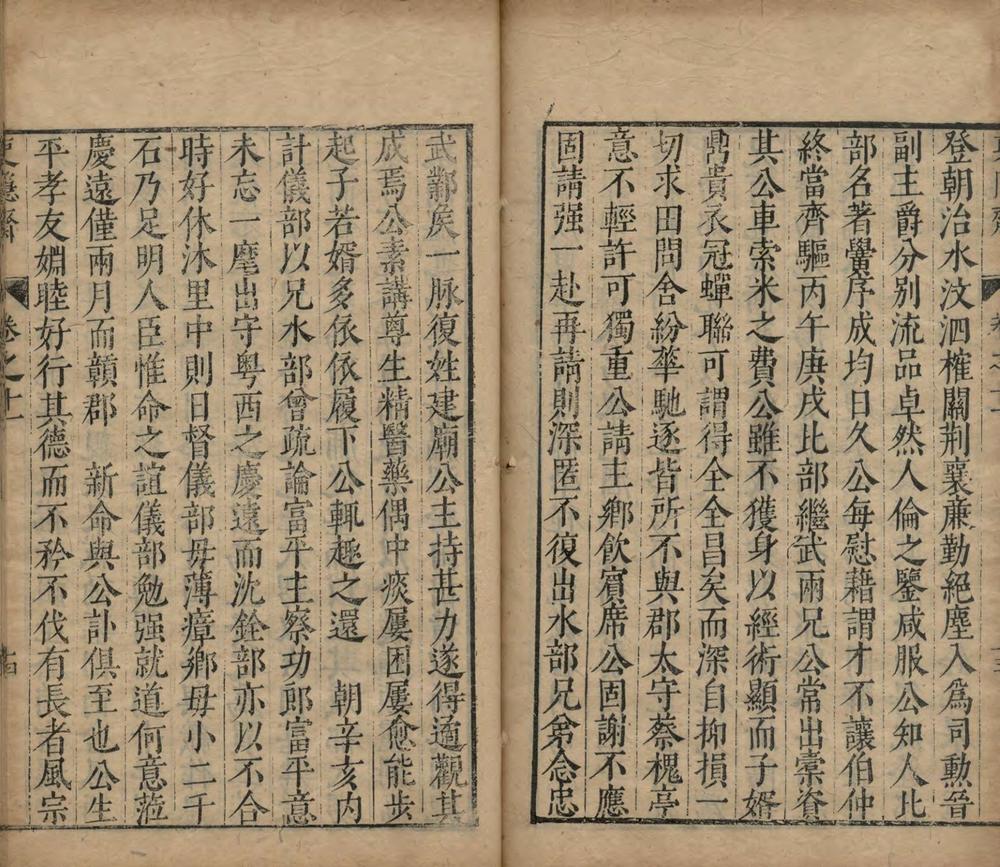 登朝治水汶泗榷關荆襄亷勤絕塵入爲司勲晉
副主爵分别流品卓然人倫之鑒咸服公知人比
部名著黌序成均日久公每慰藉謂才不讓伯仲
終當齊驅丙午庚戌比部繼武兩兄公常出橐資
其公車索米之費公雖不獲身以經術顯而子婿
鼎貴衣冠蟬聯可謂得全全昌矣而深自抑損一
切求田問舍紛華馳逐皆所不與郡太守蔡槐亭
意不輕許可獨重公請主鄉飲賓席公固謝不應
固請强一赴再請則深匿不復出水部兄弟念忠
武鄰矦一脉復姓建廟公主持甚力遂得遹觀其
成焉公素講尊生精醫藥偶中痰屢困屢愈能步
起子若婿多依依履下公輒趣之還 朝辛亥内
計儀部以兄水部曾疏論富平主察功郎富平意
未忘一麾出守粤西之慶遠而沈銓部亦以不合
時好休沐里中則日督儀部毋薄瘴鄉毋小二千
石乃足明人臣惟命之誼儀部勉强就道何意蒞
慶遠僅兩月而贛郡 新命與公訃俱至也公生
平孝友婣睦好行其德而不矜不伐有長者風宗
卷之十一